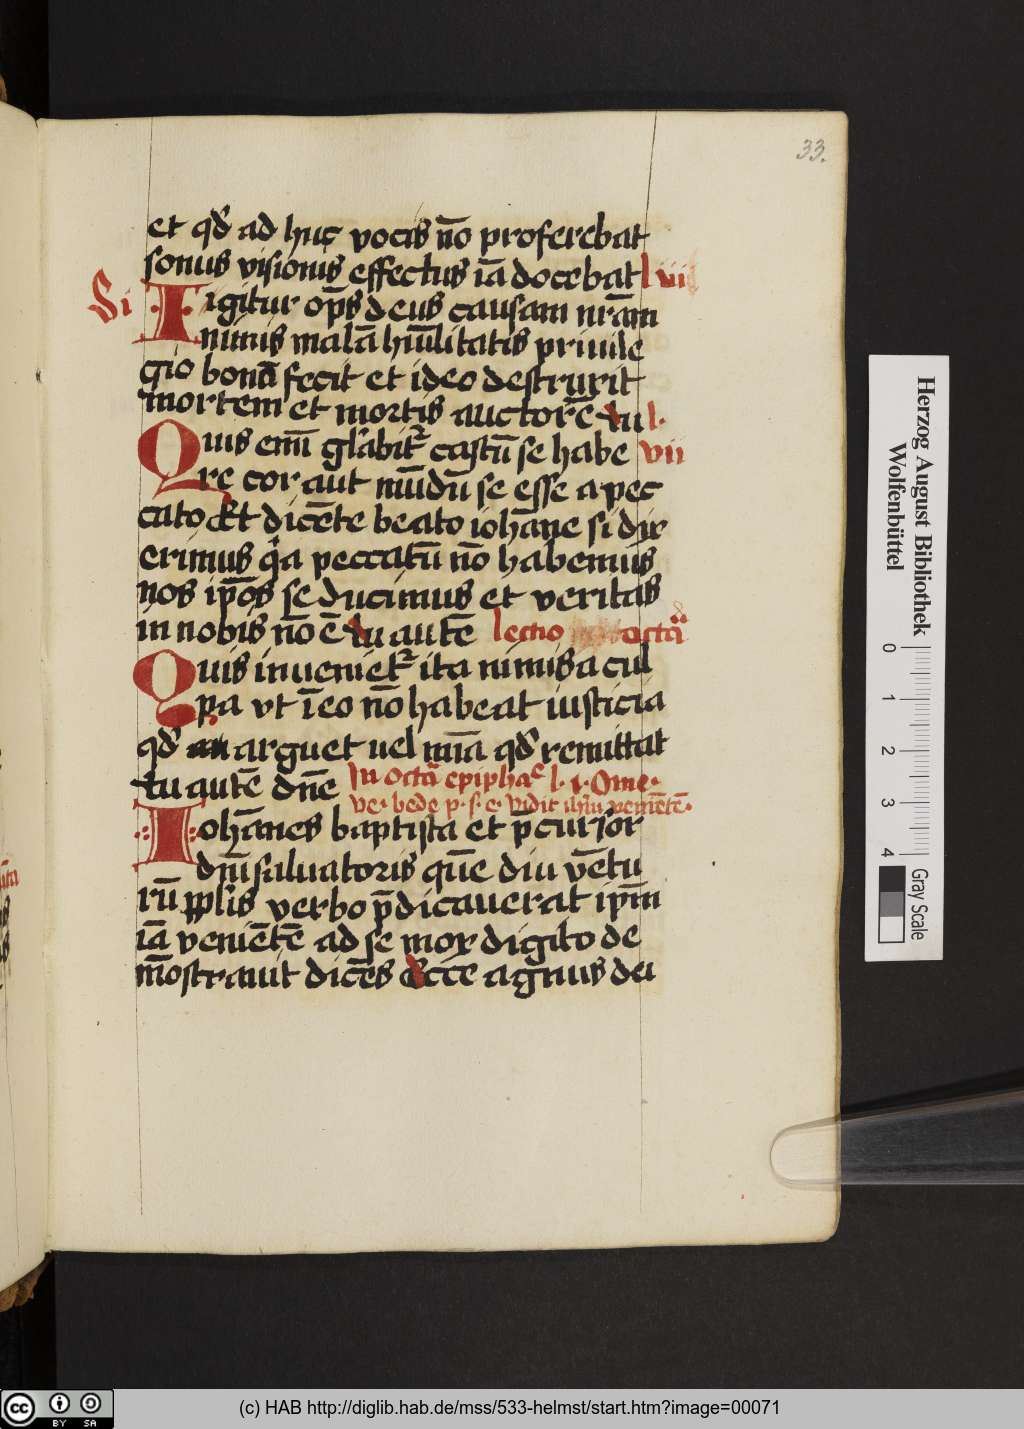 33.
et qd̄ ad huc vocis nō proferebat
sonus visionis effectus iā docebat l vii
Si Igitur op̄s deus causam nr̄am
nimis malā hūilitatis priuile
gio bonā fecit et ideo destruxit
mortem et mortis auctorē tu l.
Quis enī glābitr castū se habe vii
re cor aut mūdū se esse a pec
cato dicēte beato iohāne si dix
erimus qa peccatū nō habemus
nos ip̄os seducimus et veritas
in nobis nō ē tu autē lectio octā
Quis inuenietr ita nimis a cul
pa vt ī eo nō habeat iusticia
qd̄ arguet uel mīa qd̄ remittat
tu autē dn̄e In octā epiphāe l. i. Ome.
ve. bede p. s. e. Vidit veniētē.
Iohānes baptista et p̄cursor
dn̄i saluatoris quē diu vētu
rū pplis verbo p̄dicauerat ip̄m
iā veniētē ad se mox digito de
mōstrauit dicēs Ecce agnus dei
Herzog August Bibliothek
Wolfenbüttel
0 1 2 3 4
Gray Scale
cc BY SA
(c) HAB http://diglib.hab.de/mss/533-helmst/start.htm?image=00071